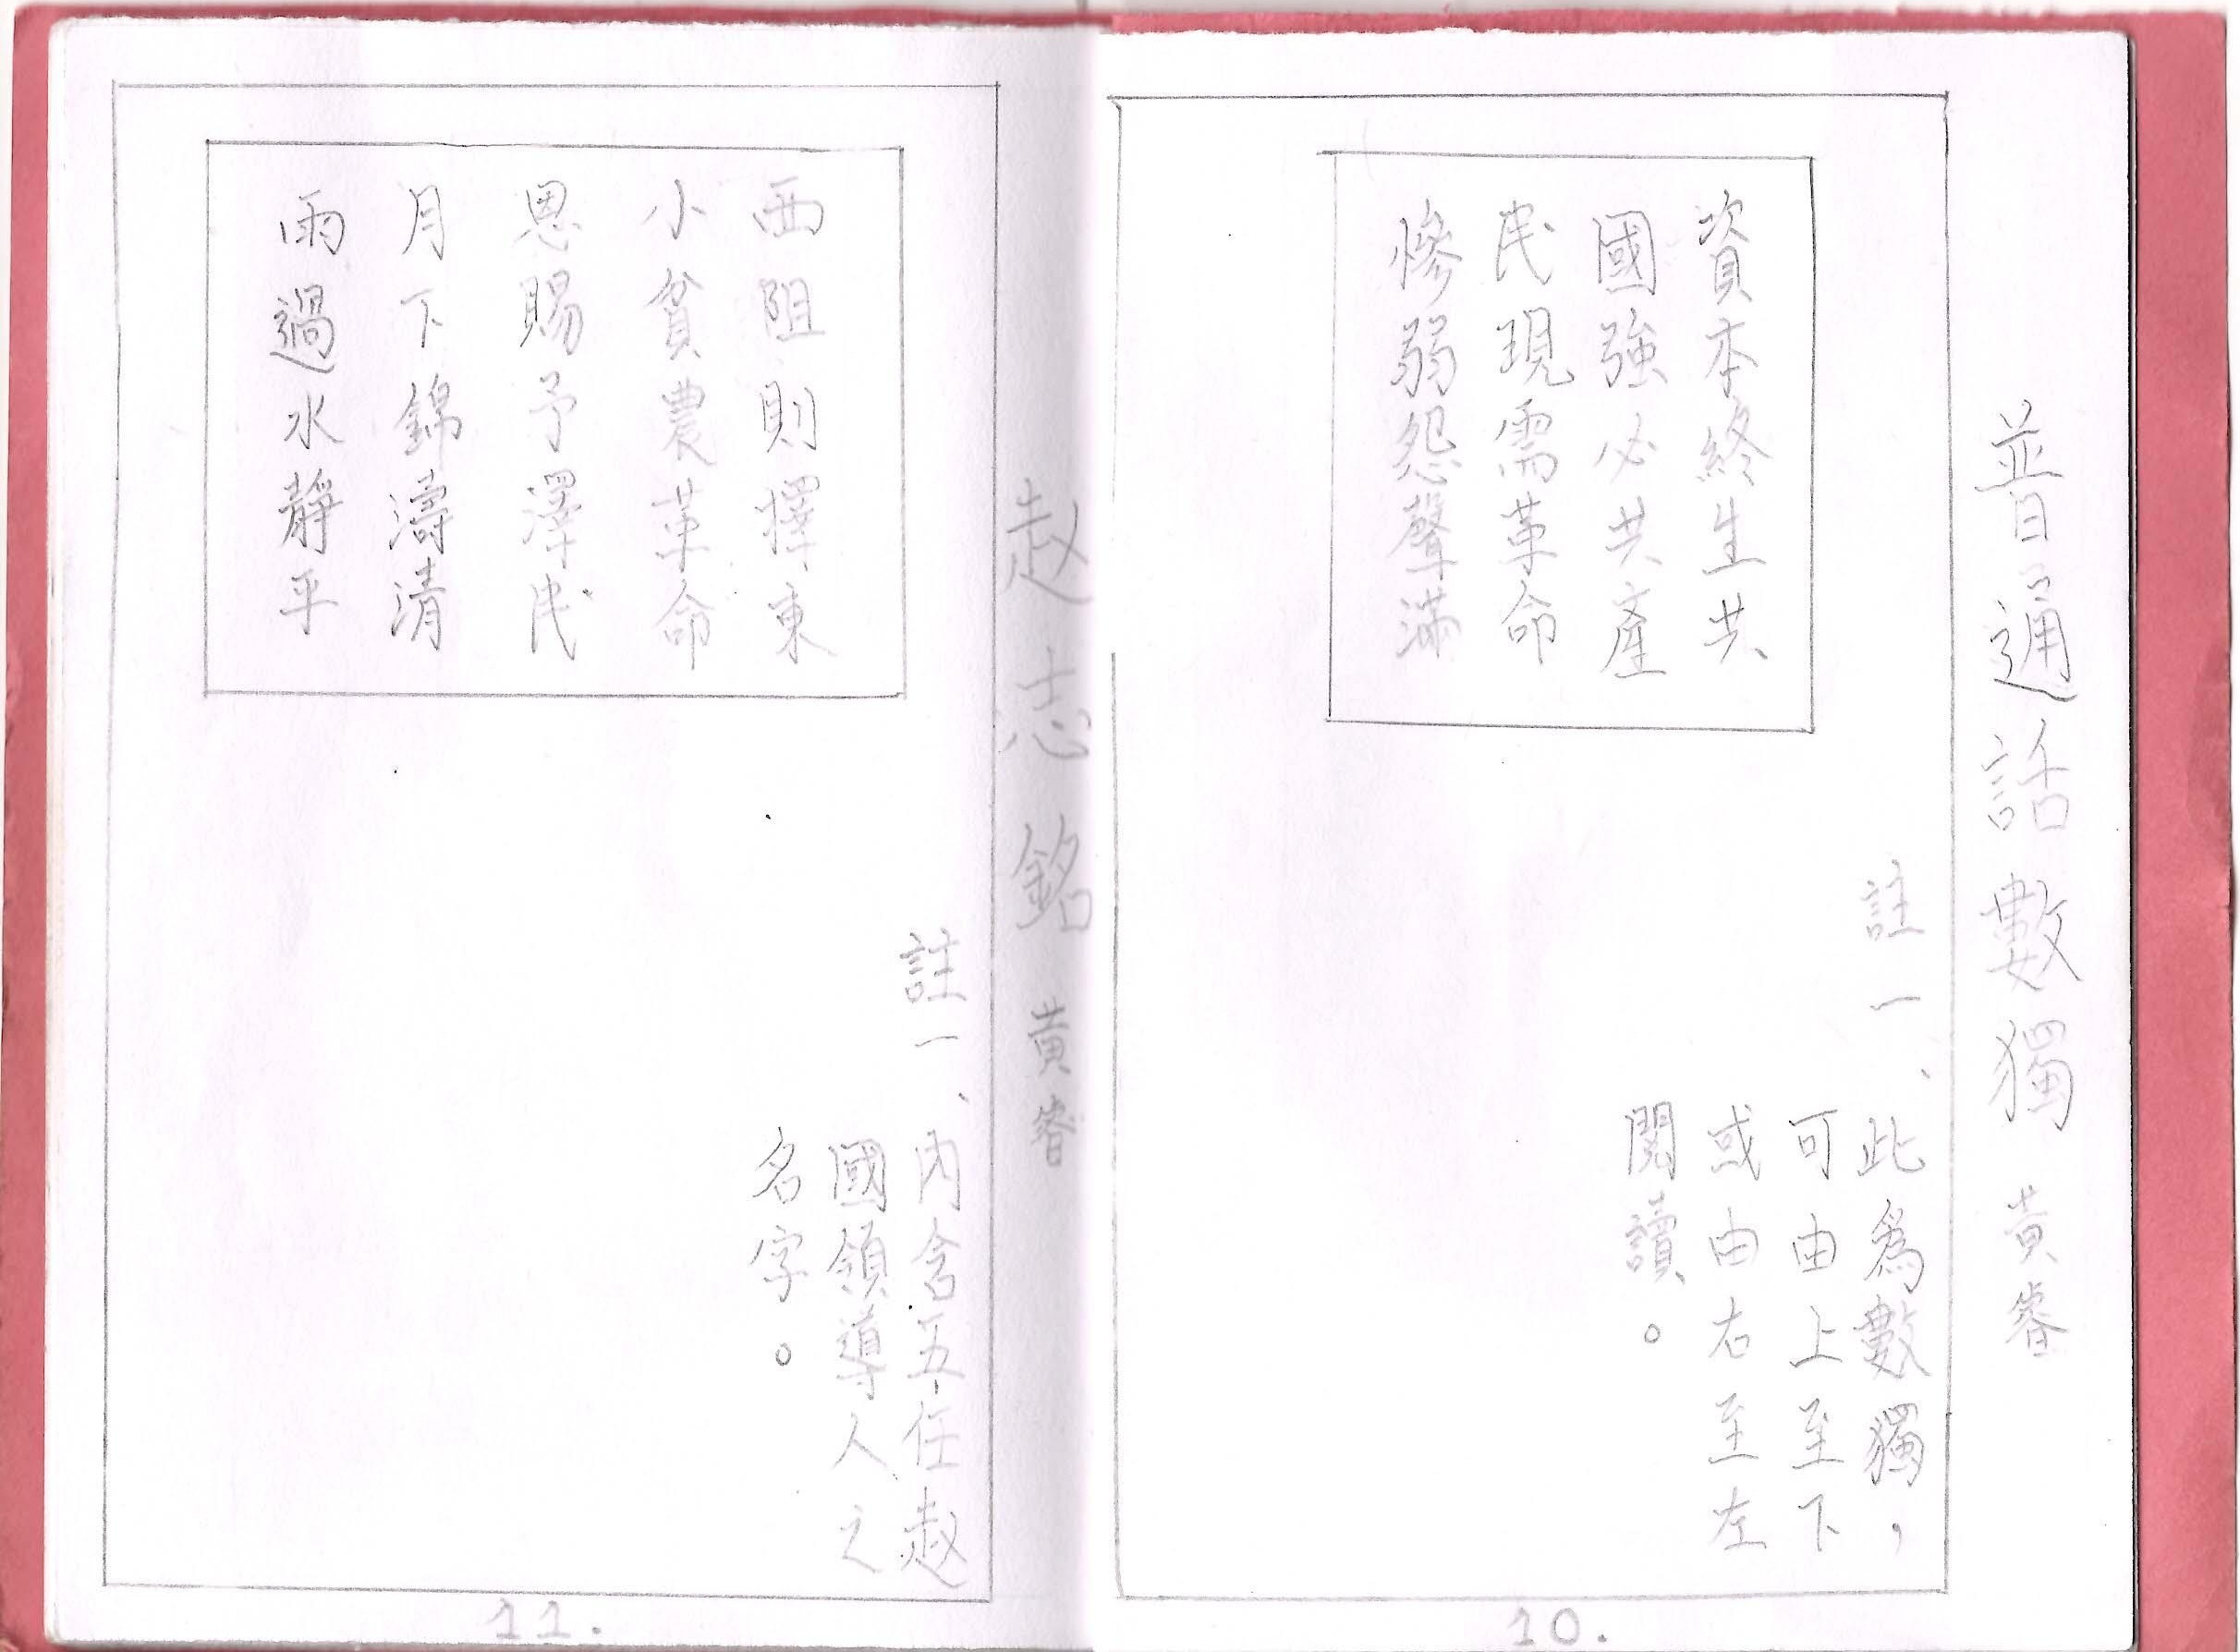 普通話數獨 黃睿
資本終生共
國強必共產
民現需革命
慘弱怨聲滿
註一、此為數獨，
可由上至下
或由右至左
閱讀。
10.
赵志銘 黃睿
西阻則擇東
小貧農革命
恩賜予澤民
月下錦濤清
雨過水靜平
註一、內含五任赵
國領導人之
名字。
11.